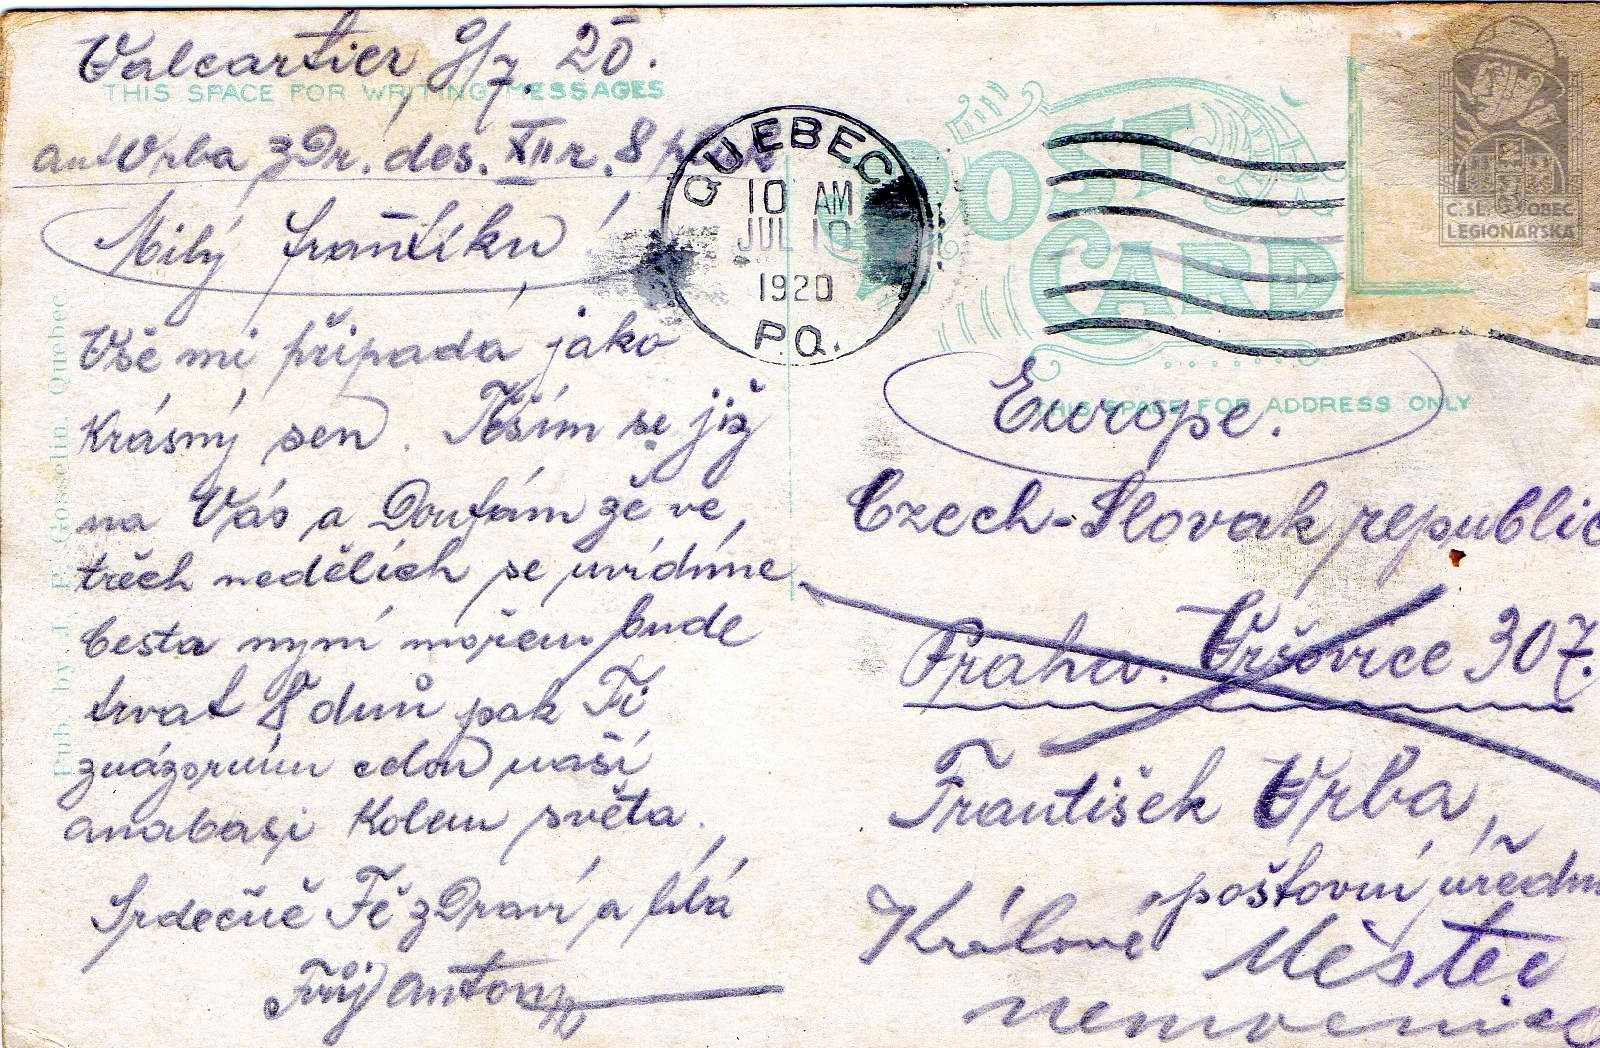 Valcartier 9/7. 20.
THIS SPACE FOR WRITING MESSAGES
Ant Vrba zdr. des. XII r. 8
Milý Frantíku!
Vše mi připadá jako
krásný sen. Těším se již
na Vás a Doufám že ve
třech nedělích se uvidíme
Cesta mým mořem bude
trvat 8 dnů pak Ti
znázorním celou naší
anabasi kolem světa.
Srdečně Tě zdraví a líbá
Tvůj Anton
Pub. by J. P. Gosselin, Quebec
QUEBEC
10 AM
JUL 10
1920
P.Q.
POST CARD
THIS SPACE FOR ADDRESS ONLY
Europe.
Czech-Slovak republic
Praha. Vršovice 307.
František Vrba,
poštovní úředn
Králové Městec
nemocnice
Č. SL. OBEC
LEGIONÁŘSKÁ